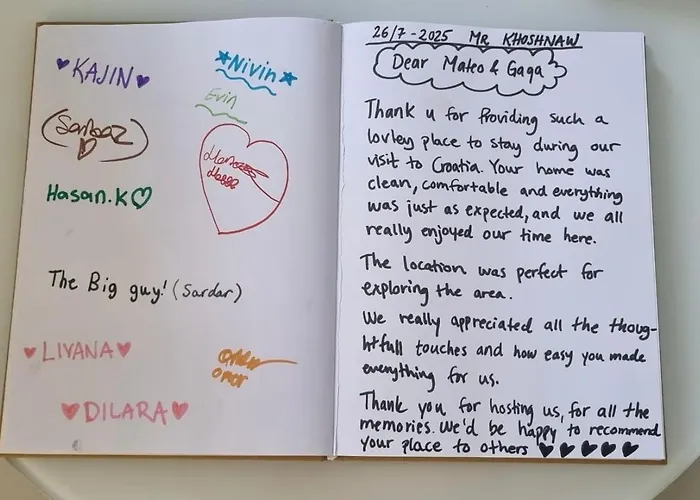 KAJIN
Nivin
Evin
Sarbaz
Hasan.K
The Big guy! (Sardar)
LIVANA
DILARA
26/7-2025 MR KHOSHNAW
Dear Mateo & Gaga
Thank u for Providing such a
lovley place to stay during our
visit to Croatia. Your home was
clean, comfortable and everything
was just as expected, and we all
really enjoyed our time here.
The location was perfect for
exploring the area.
We really appreciated all the thoug-
htfull touches and how easy you made
everything for us.
Thank you for hosting us, for all the
memories. We'd be happy to recommend
your place to others